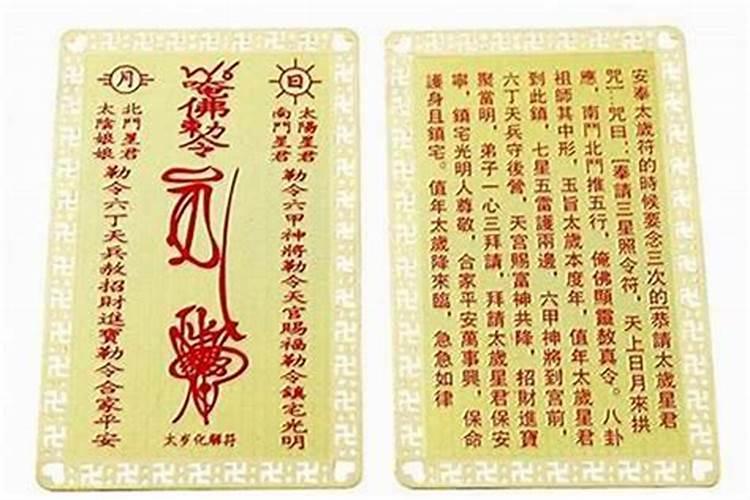 日
太陽星君
南鬥星君
勒令六甲神將勒令天官賜福勒令鎮宅光明
唵佛勅令
月
北鬥星君
太陰娘娘
勒令六丁天兵赦招財進寶勒令合家平安
太岁化解符
安奉太歲符的時候要念三次的[恭請太歲星君
咒]咒曰:[奉請三星照令符,天上日月來拱
應,南鬥北鬥推五行,俺佛顯靈敖真令。八卦
祖師其中形,玉旨太歲本度年,值年太歲星君
到此鎮,七星五雷護兩邊,六甲神將到宮前,
六丁天兵守後營,天宮賜富神共降,招財進寶
聚當明,弟子一心三拜請,拜請太歲星君保安
寧,鎮宅光明人尊敬,合家平安萬事興,保命
護身且鎮宅。值年太歲降來臨,急急如律